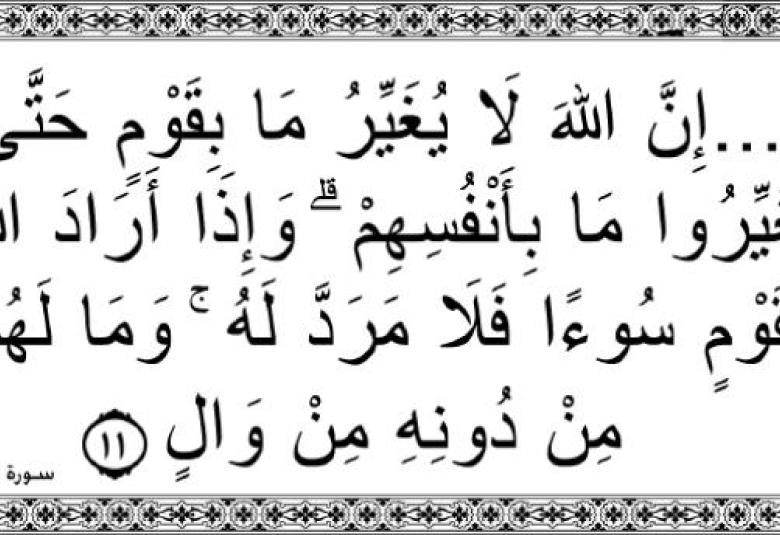 ...إِنَّ اللهَ لَا يُغَيِّرُ مَا بِقَوْمٍ حَتَّى
مَا بِأَنْفُسِهِمْ ۗ وَإِذَا أَرَادَ
سُوءًا فَلَا مَرَدَّ لَهُ ۚ وَمَا
مِنْ دُونِهِ مِنْ وَالٍ ١١
سورة